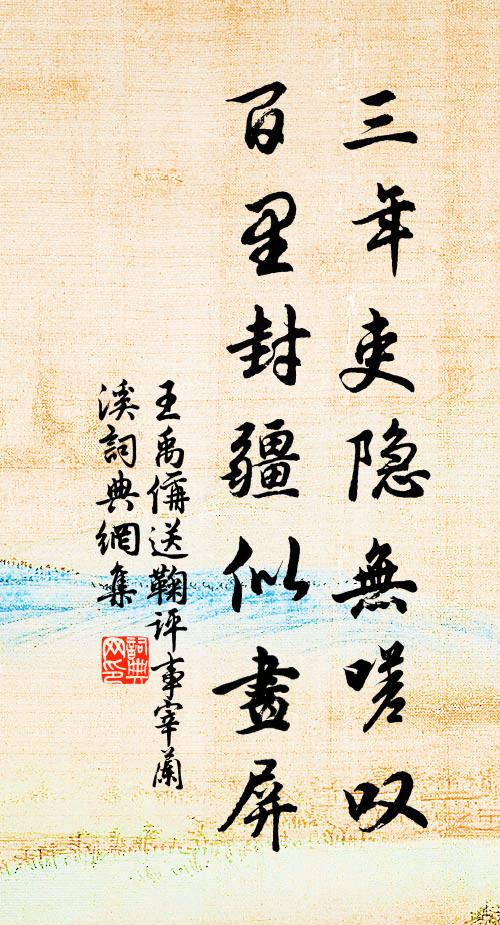 三年吏隐無嗟叹
百里封疆似畫屏
王禹偁送鞠評事宰蘭
溪詞典網集
詞典网印